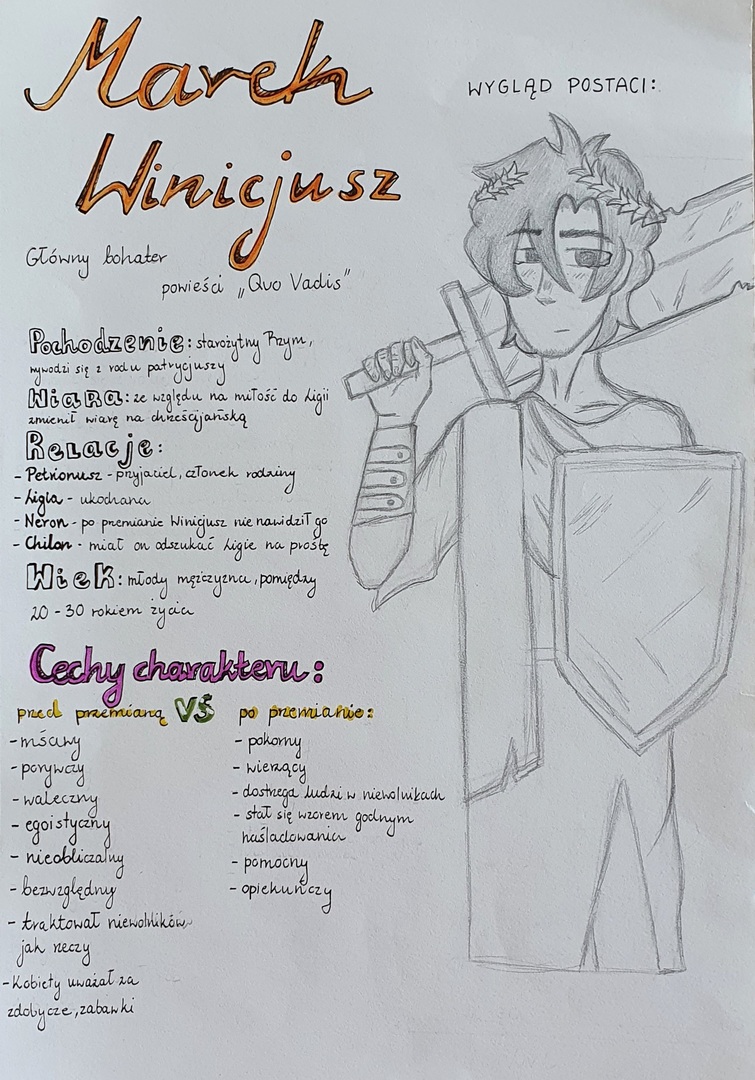 Marek
Winicjusz
WYGLĄD POSTACI:
Główny bohater
powieści „Quo Vadis”
Pochodzenie: starożytny Rzym,
wywodzi się z rodu patrycjuszy
Wiara: ze względu na miłość do Ligii
zmienił wiarę na chrześcijańską
Relacje:
- Petroniusz - przyjaciel, członek rodziny
- Ligia - ukochana
- Neron - po przemianie Winicjusz nie nawidził go
- Chilon - miał on odszukać Ligie na prośbę
Wiek: młody mężczyzna, pomiędzy
20 - 30 rokiem życia
Cechy charakteru:
przed przemianą VS po przemianie:
- mściwy
- porywczy
- waleczny
- egoistyczny
- nieobliczalny
- bezwzględny
- traktował niewolników,
jak rzeczy
- Kobiety uważał za
zdobycze, zabawki
- pokorny
- wierzący
- dostrzega ludzi w niewolnikach
- stał się wzorem godnym
naśladowania
- pomocny
- opiekuńczy